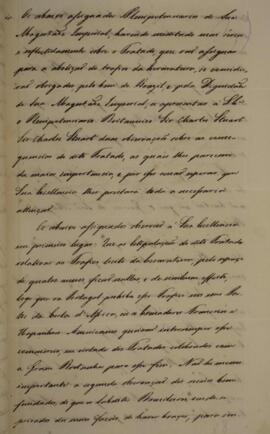 Os abaixo assignados Plenipotenciarios de Sua
Magestade Imperial, havendo meditado mui séria
e reflectidamente sobre o Tratado, que vai assignar
para a abolição do trafico da Escravatura, se consideram
obrigados pelo bem do Brazil, e pela Dignidade
de Sua Magestade Imperial, a apresentar a S. Exª
o Plenipotenciario Britannico Sir Charles Stuart
Sir Charles Stuart duas observações sobre as conse-
quencias deste Tratado, as quais lhes parecem
da maior importancia, e por isso ousão esperar que
Sua Excellencia lhes prestará toda a necessaria
attenção.
Os abaixo assignados observão a Sua Excellencia
em primeiro lugar: Que as estipulações deste Tratado
relativas ao Trafico licito da Escravatura, pelo espaço
de quatro annos ficão nullas, e de nenhum effeito,
logo que ou Portugal prohiba esse Trafico em seus Por-
tos da Costa d'Africa, ou a bandeira Franceza e
Hespanhola Americana queirão interromper esse
commercio, em virtude dos Tratados celebrados com
a Gram Bretanha para esse fim. Não he menos
importante a segunda observação do receio bem
fundado, de que o Soldado Brazileiro vendo-se
privado do mui facil, de haver braços, para